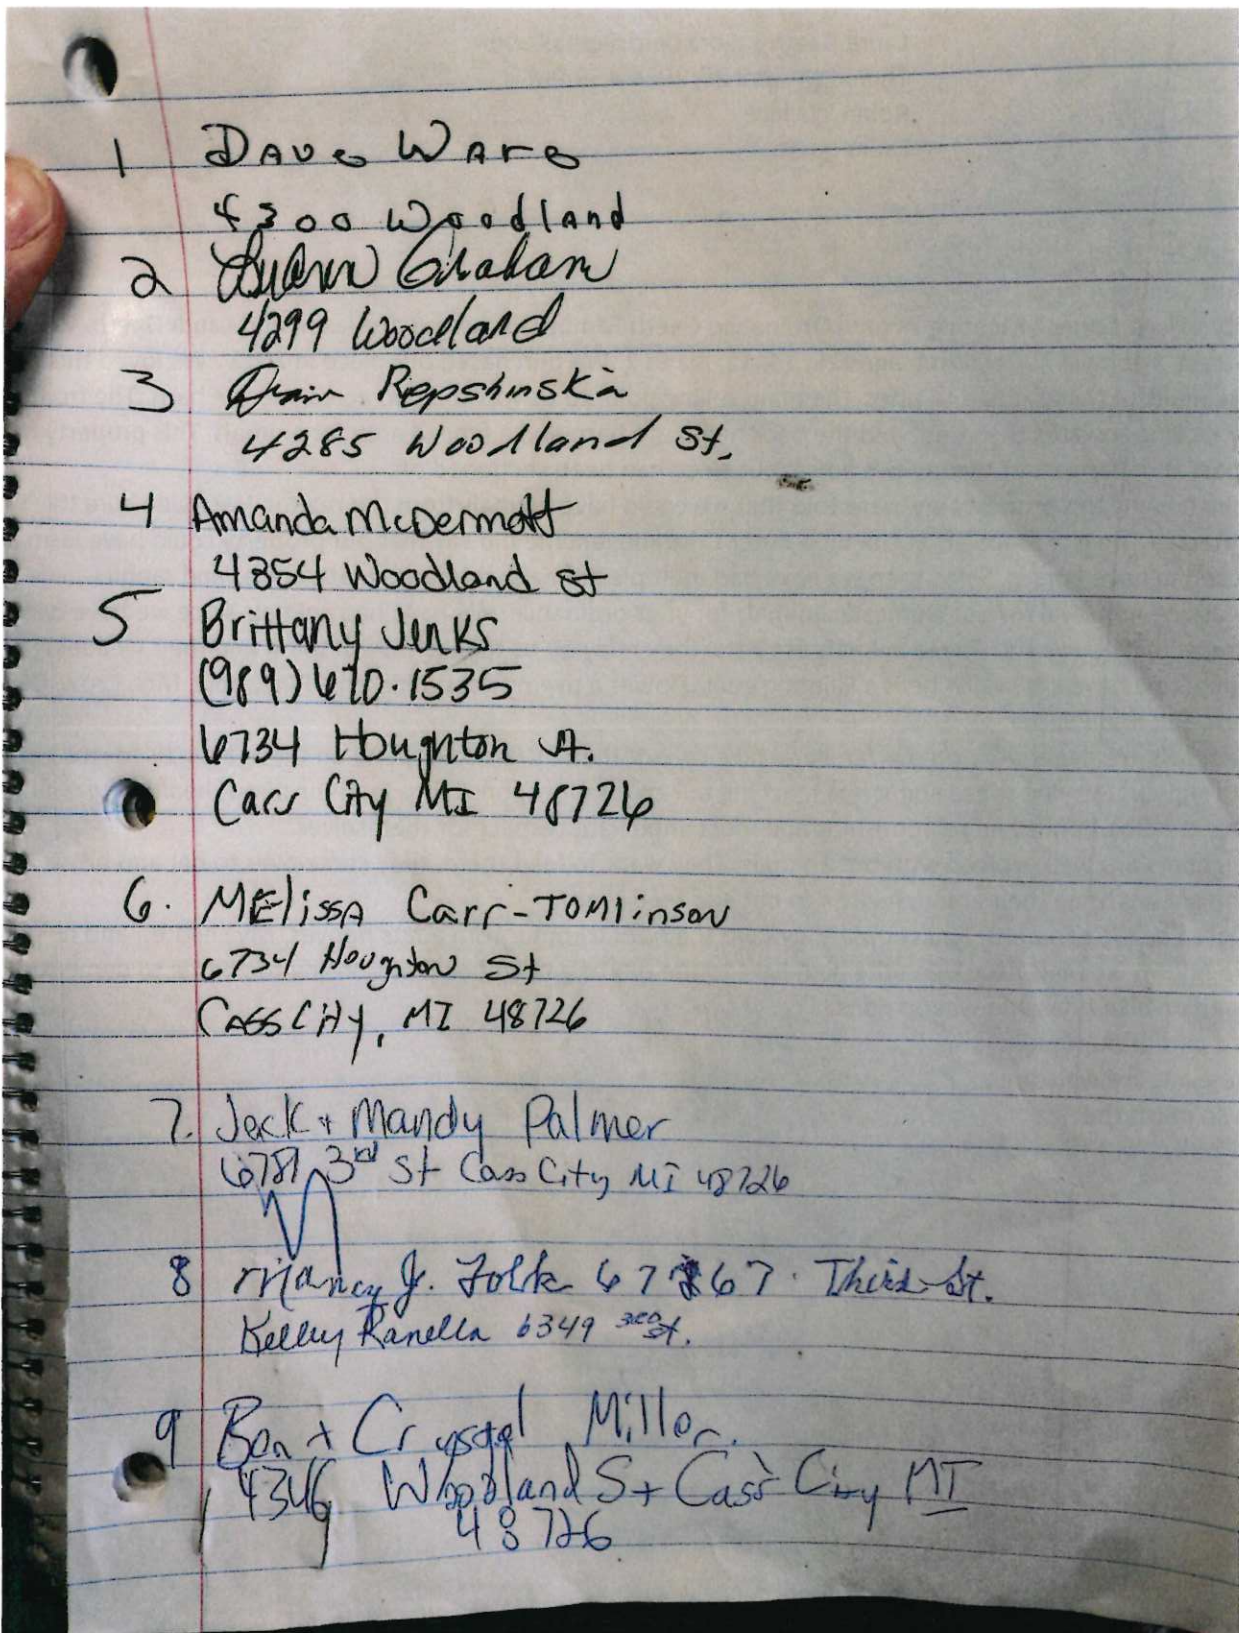 1 Dave Ware
4300 Woodland
2 LuAnn Graham
4299 Woodland
3 Repshinska
4285 Woodland St.
4 Amanda McDermott
4354 Woodland St
5 Brittany Jenks
(989) 670.1535
6734 Houghton St.
Cass City MI 48726
6. MElissA Carr-TOMlinson
6734 Houghton St
CASS City, MI 48726
7. Jack + Mandy Palmer
6781 3rd St Cass City MI 48726
8 Nancy J. 6767 Third St.
Kelley Ranella 6349 3RD St.
9 Ben + Crystal Miller
4346 Woodland St Cass City MI
48726